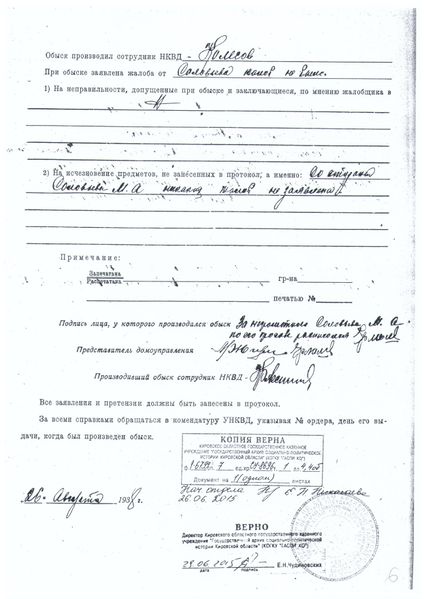 Обыск производил сотрудник НКВД - Колесов
При обыске заявлена жалоба от Соловьева жалоб не было.
1) На неправильности, допущенные при обыске и заключающиеся, по мнению жалобщика в
2) На исчезновение предметов, не занесенных в протокол, а именно: Со стороны
Соловьева М. А. никаких жалоб не заявлено
Примечание:
Запечатана
Распечатана
гр-на
печатью №
Подпись лица, у которого производился обыск За неграмотного Соловьева М. А.
по его просьбе расписался
Представитель домоуправления
Производивший обыск сотрудник НКВД -
Все заявления и претензии должны быть занесены в протокол.
За всеми справками обращаться в комендатуру УНКВД, указывая № ордера, день его вы-
дачи, когда был произведен обыск.
КОПИЯ ВЕРНА
КИРОВСКОЕ ОБЛАСТНОЕ ГОСУДАРСТВЕННОЕ КАЗЕННОЕ
УЧРЕЖДЕНИЕ "ГОСУДАРСТВЕННЫЙ АРХИВ СОЦИАЛЬНО-ПОЛИТИЧЕСКОЙ
ИСТОРИИ КИРОВСКОЙ ОБЛАСТИ" (КОГКУ "ГАСПИ КО")
Документ на 1 (одном) листах
Нач. отдела
26.06.2015
26 Августа 1938 г.
ВЕРНО
Директор Кировского областного государственного казенного
учреждения "Государственный архив социально-политической
истории Кировской области" (КОГКУ "ГАСПИ КО")
29.06.2015 Е.Н.Чудиновских
ДАТА ПОДПИСЬ
6